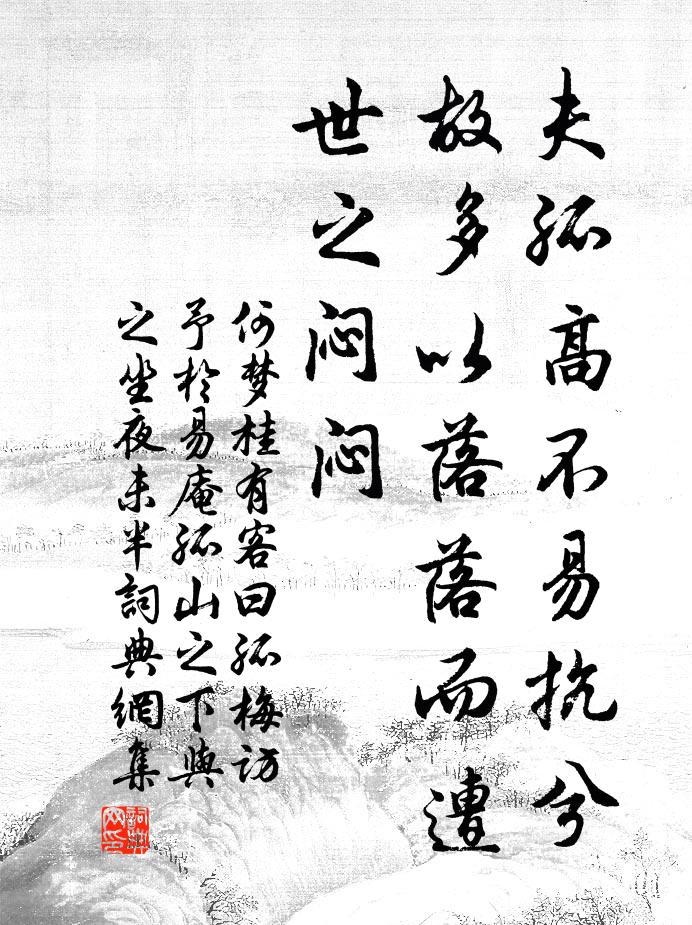 夫孤高不易抗兮
故多以落落而遭
世之闷闷
何梦桂有客曰孤梅访
予於易庵孤山之下與
之坐夜未半詞典網集
詞典网印